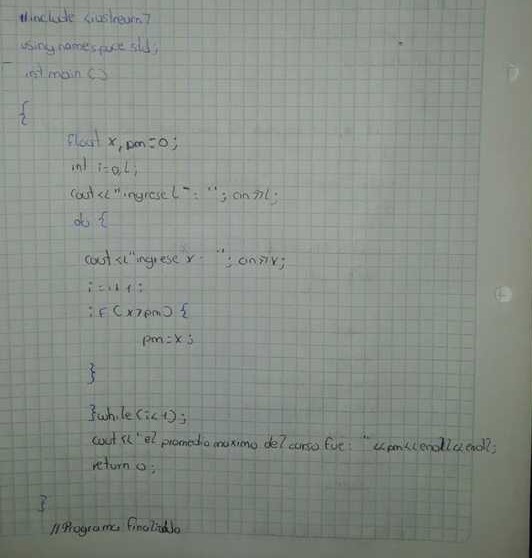 #include <iostream>
using namespace std;
int main ()
{
float x, pm=0;
int i=0,L;
cout<<"ingrese L": "; cin>>L;
do {
cout<<"ingrese x: "; cin>>x;
i=i+1;
if (x>pm) {
pm=x;
}
}while(i<1);
cout<<"el promedio maximo del curso fue: "<<pm<<endl<<endl;
return 0;
}
//Programa Finalizado